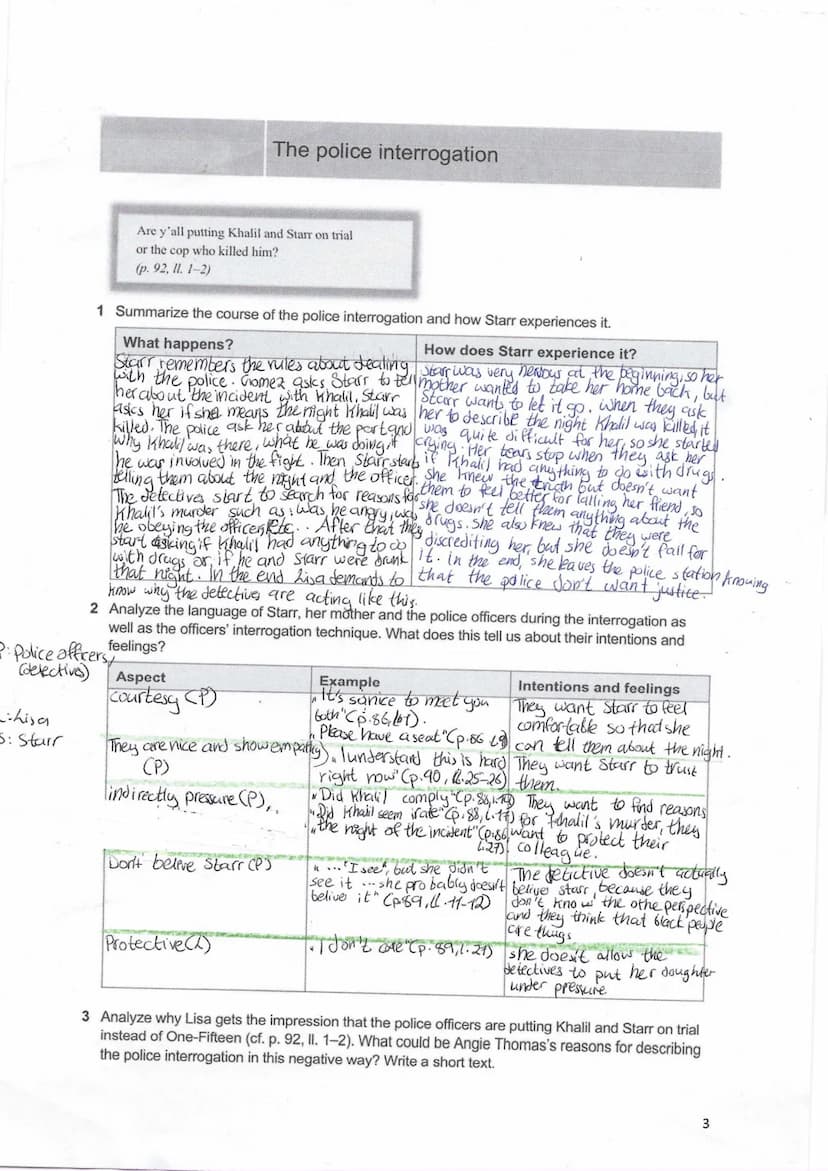 The police interrogation
Are y'all putting Khalil and Starr on trial
or the cop who killed him?
(p. 92, ll. 1–2)
1 Summarize the course of the police interrogation and how Starr experiences it.
What happens?
Starr remembers the rules about dealing
with the police. Gomez asks Starr to tell
her about the incident with Khalil. Starr
asks her if she means the night Khalil was
killed. The police ask her about the party and
why Khalil was there, what he was doing, if
he was involved in the fight. Then Starr starts
telling them about the night and the officer.
The detectives start to search for reasons for
Khalil's murder such as: was he angry, was
he obeying the officer, etc... After that they
start asking if Khalil had anything to do
with drugs or, if he and Starr were drunk
that night. In the end Lisa demands to
know why the detectives are acting like this.
How does Starr experience it?
Starr was very nervous at the beginning, so her
mother wanted to take her home back, but
Starr wants to let it go. When they ask
her to describe the night Khalil was killed, it
was quite difficult for her, so she started
crying. Her tears stop when they ask her
if Khalil had anything to do with drugs.
She knew the truth but doesn't want
them to feel better for killing her friend, so
she doesn't tell them anything about the
drugs. She also knew that they were
discrediting her, but she doesn't fall for
it. In the end, she leaves the police station knowing
that the police don't want justice.
2 Analyze the language of Starr, her mother and the police officers during the interrogation as
well as the officers' interrogation technique. What does this tell us about their intentions and
feelings?
P: Police officers/
(detectives)
L: Lisa
S: Starr
Aspect
Example
Intentions and feelings
courtesy (P)
"It's so nice to meet you
both" (p. 86, l. 1).
"Please have a seat" (p. 86 l. 9)
They want Starr to feel
comfortable so that she
can tell them about the night.
They are nice and show empathy
(P)
"I understand this is hard
right now" (p. 90, ll. 25-26)
They want Starr to trust
them.
indirectly pressure (P),
"Did Khalil comply" (p. 88, l. 13)
"Did Khalil seem irate" (p. 88, l. 17)
"the night of the incident" (p. 86,
l. 27)
They want to find reasons
for Khalil's murder, they
want to protect their
colleague.
Don't belive Starr (P)
"... 'I see', but she didn't
see it ... she probably doesn't
belive it" (p 89, ll. 11-12)
The detictive doesn't actually
belives starr, because they
don't know the othe perspective
and they think that black people
are thugs
Protective (L)
"I don't care" (p. 89, l. 21)
she doesn't allow the
detectives to put her doughter
under pressure
3 Analyze why Lisa gets the impression that the police officers are putting Khalil and Starr on trial
instead of One-Fifteen (cf. p. 92, ll. 1–2). What could be Angie Thomas's reasons for describing
the police interrogation in this negative way? Write a short text.
3